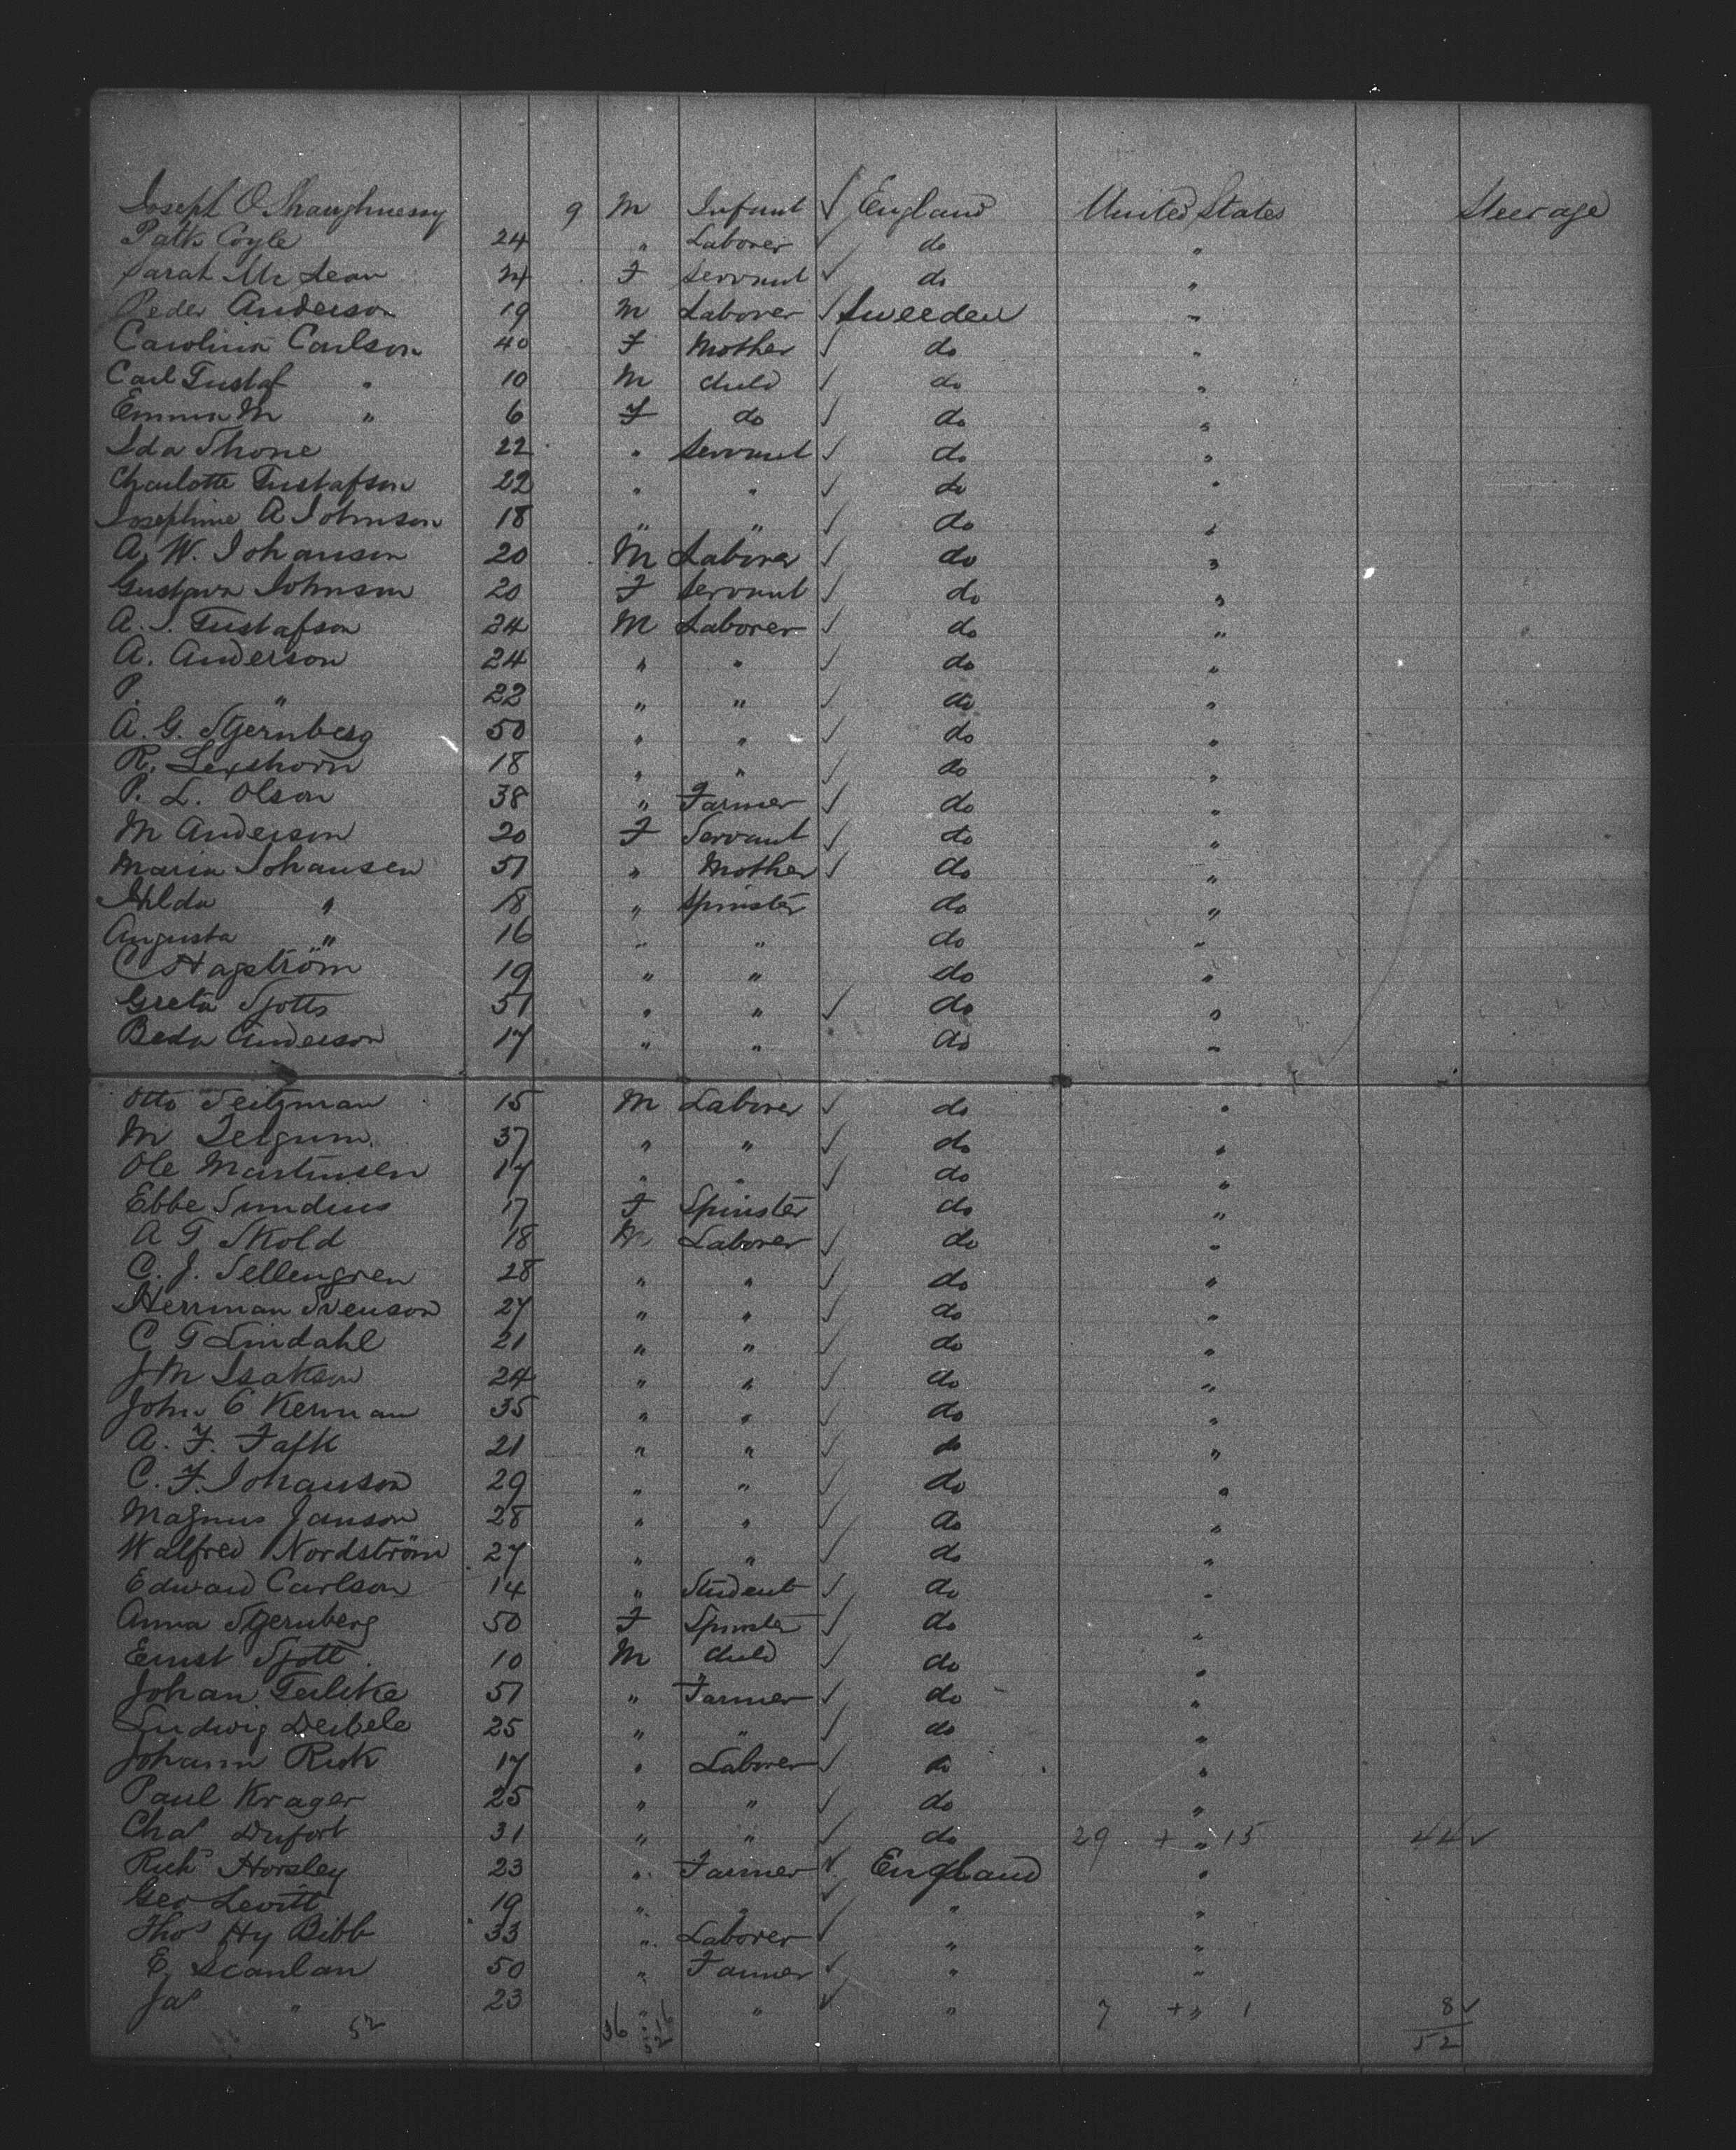 Joseph O Shaughnessy 9 M Infant ✓ England United States Steerage
Patk Coyle 24 " Laborer ✓ do "
Sarah McLean 24 F Servant ✓ do "
Peder Anderson 19 M Laborer ✓ Sweeden "
Carolina Carlson 40 F Mother ✓ do "
Carl Gustaf " 10 M Child ✓ do "
Emma M " 6 F do ✓ do "
Ida Thone 22 " Servant ✓ do "
Charlotte Gustafson 22 " " ✓ do "
Josephine A Johnson 18 " " ✓ do "
A. W. Johanson 20 M Laborer ✓ do "
Gustava Johnson 20 F Servant ✓ do "
A. J. Gustafson 24 M Laborer ✓ do "
A. Anderson 24 " " ✓ do "
P. " 22 " " ✓ do "
A. G. Stjernberg 50 " " ✓ do "
R. Lexshorn 18 " " ✓ do "
P. L. Olson 38 " Farmer ✓ do "
M Anderson 20 F Servant ✓ do "
Maria Johansen 51 " Mother ✓ do "
Hilda " 18 " Spinster do "
Augusta " 16 " " do "
C Hagström 19 " " do "
Greta Sjotts 51 " " ✓ do "
Beda Anderson 17 " " do "
Otto Seitzman 15 M Laborer ✓ do "
M 37 " " ✓ do "
Ole Martinsen 17 " " ✓ do "
Ebbe Sundius 17 F Spinster do "
A G Skold 18 M Laborer ✓ do "
C. J. Sellengren 28 " " ✓ do "
Herrman Svenson 27 " " ✓ do "
C G Lindahl 21 " " ✓ do "
J M Isakson 24 " " ✓ do "
John E Kerman 35 " " ✓ do "
A. F. Falk 21 " " ✓ do "
C. F. Johanson 29 " " ✓ do "
Magnus Janson 28 " " ✓ do "
Walfred Nordström 27 " " ✓ do "
Edward Carlson 14 " Student ✓ do "
Anna Stjernberg 50 F Spinster ✓ do "
Ernst Sjott 10 M Child ✓ do "
Johan 51 " Farmer ✓ do "
Ludwig Deibele 25 " " ✓ do "
Johann Rick 17 " Laborer ✓ do "
Paul Krager 25 " " ✓ do "
Chas Dufort 31 " " ✓ do 29 + " 15 44 ✓
Richd Horsley 23 " Farmer ✓ England "
Geo Levitt 19 " " ✓ " "
Thos Hy Bibb 33 " Laborer ✓ " "
E Scanlan 50 " Farmer ✓ " "
Jas " 23 " " ✓ " 7 + " 1 8 ✓
52 36 16 52